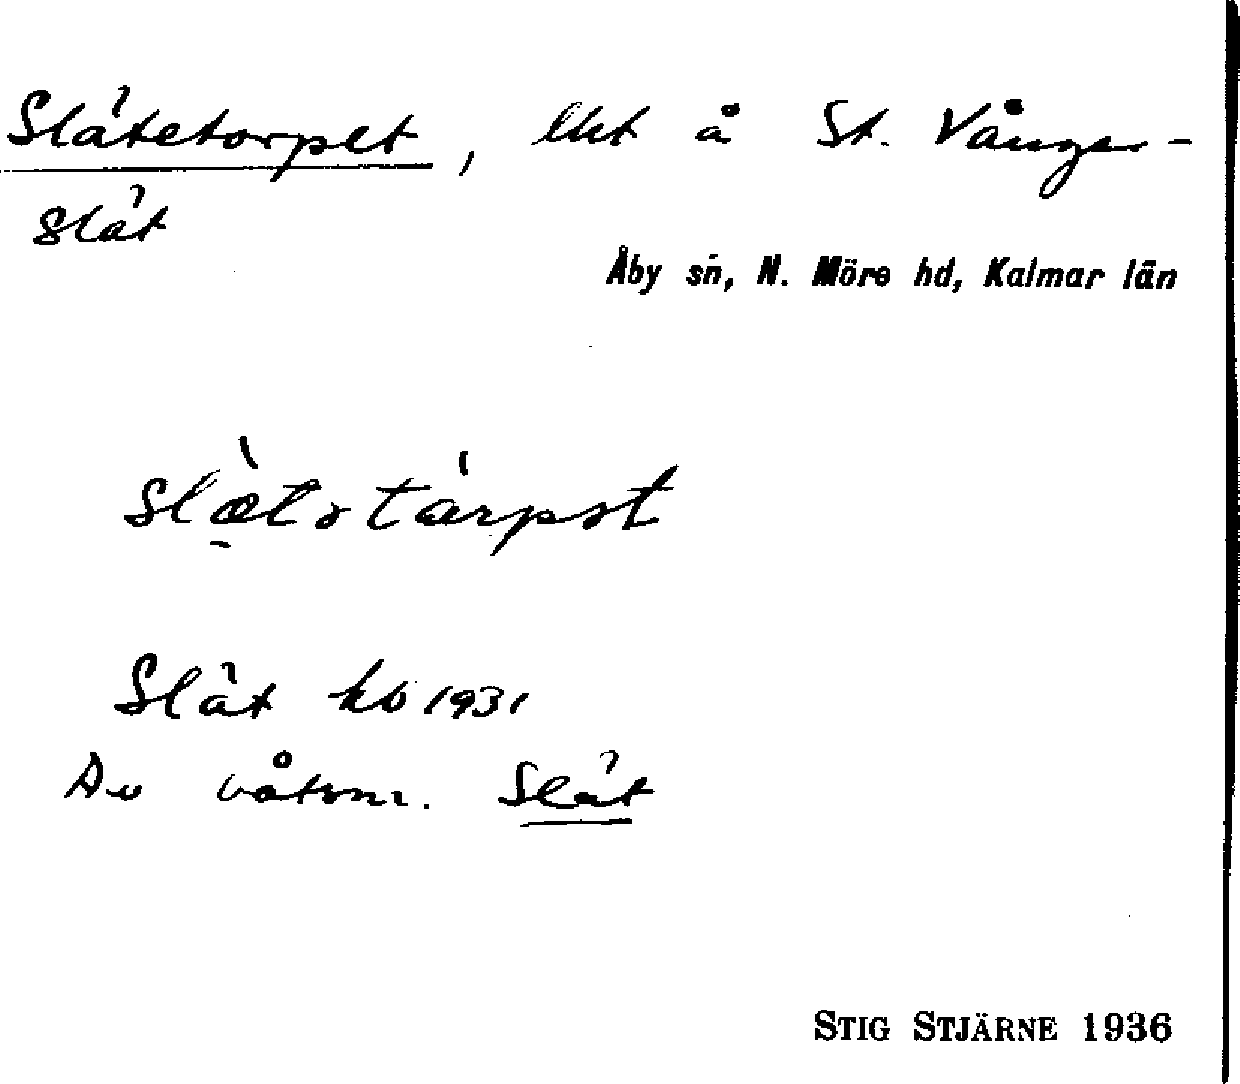 Slätetorpet, lht å St. Vånger-
slät
Åby sn, N. Möre hd, Kalmar län
slæ̀tətárpət
Slät kb 1931
Av båtsnr. Slät
STIG STJÄRNE 1936